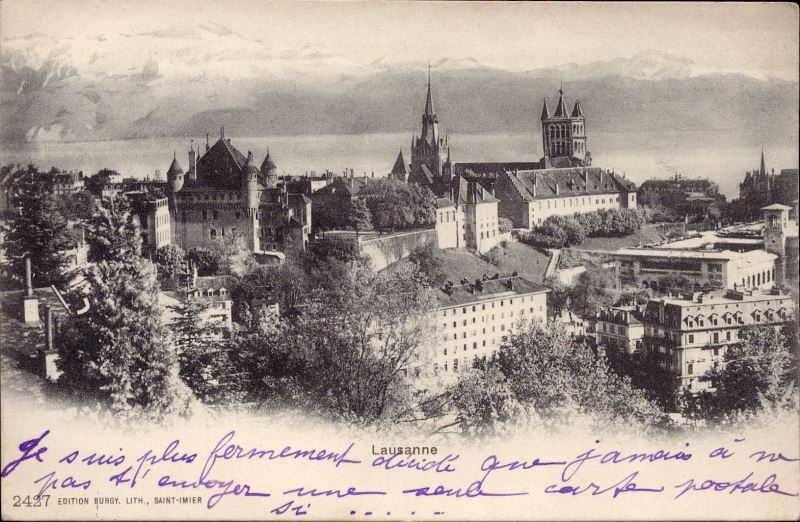 Lausanne
Je suis plus fermement décidé que jamais à ne
pas t'envoyer une seule carte postale
si .....
2427 EDITION BURGY. LITH., SAINT-IMIER